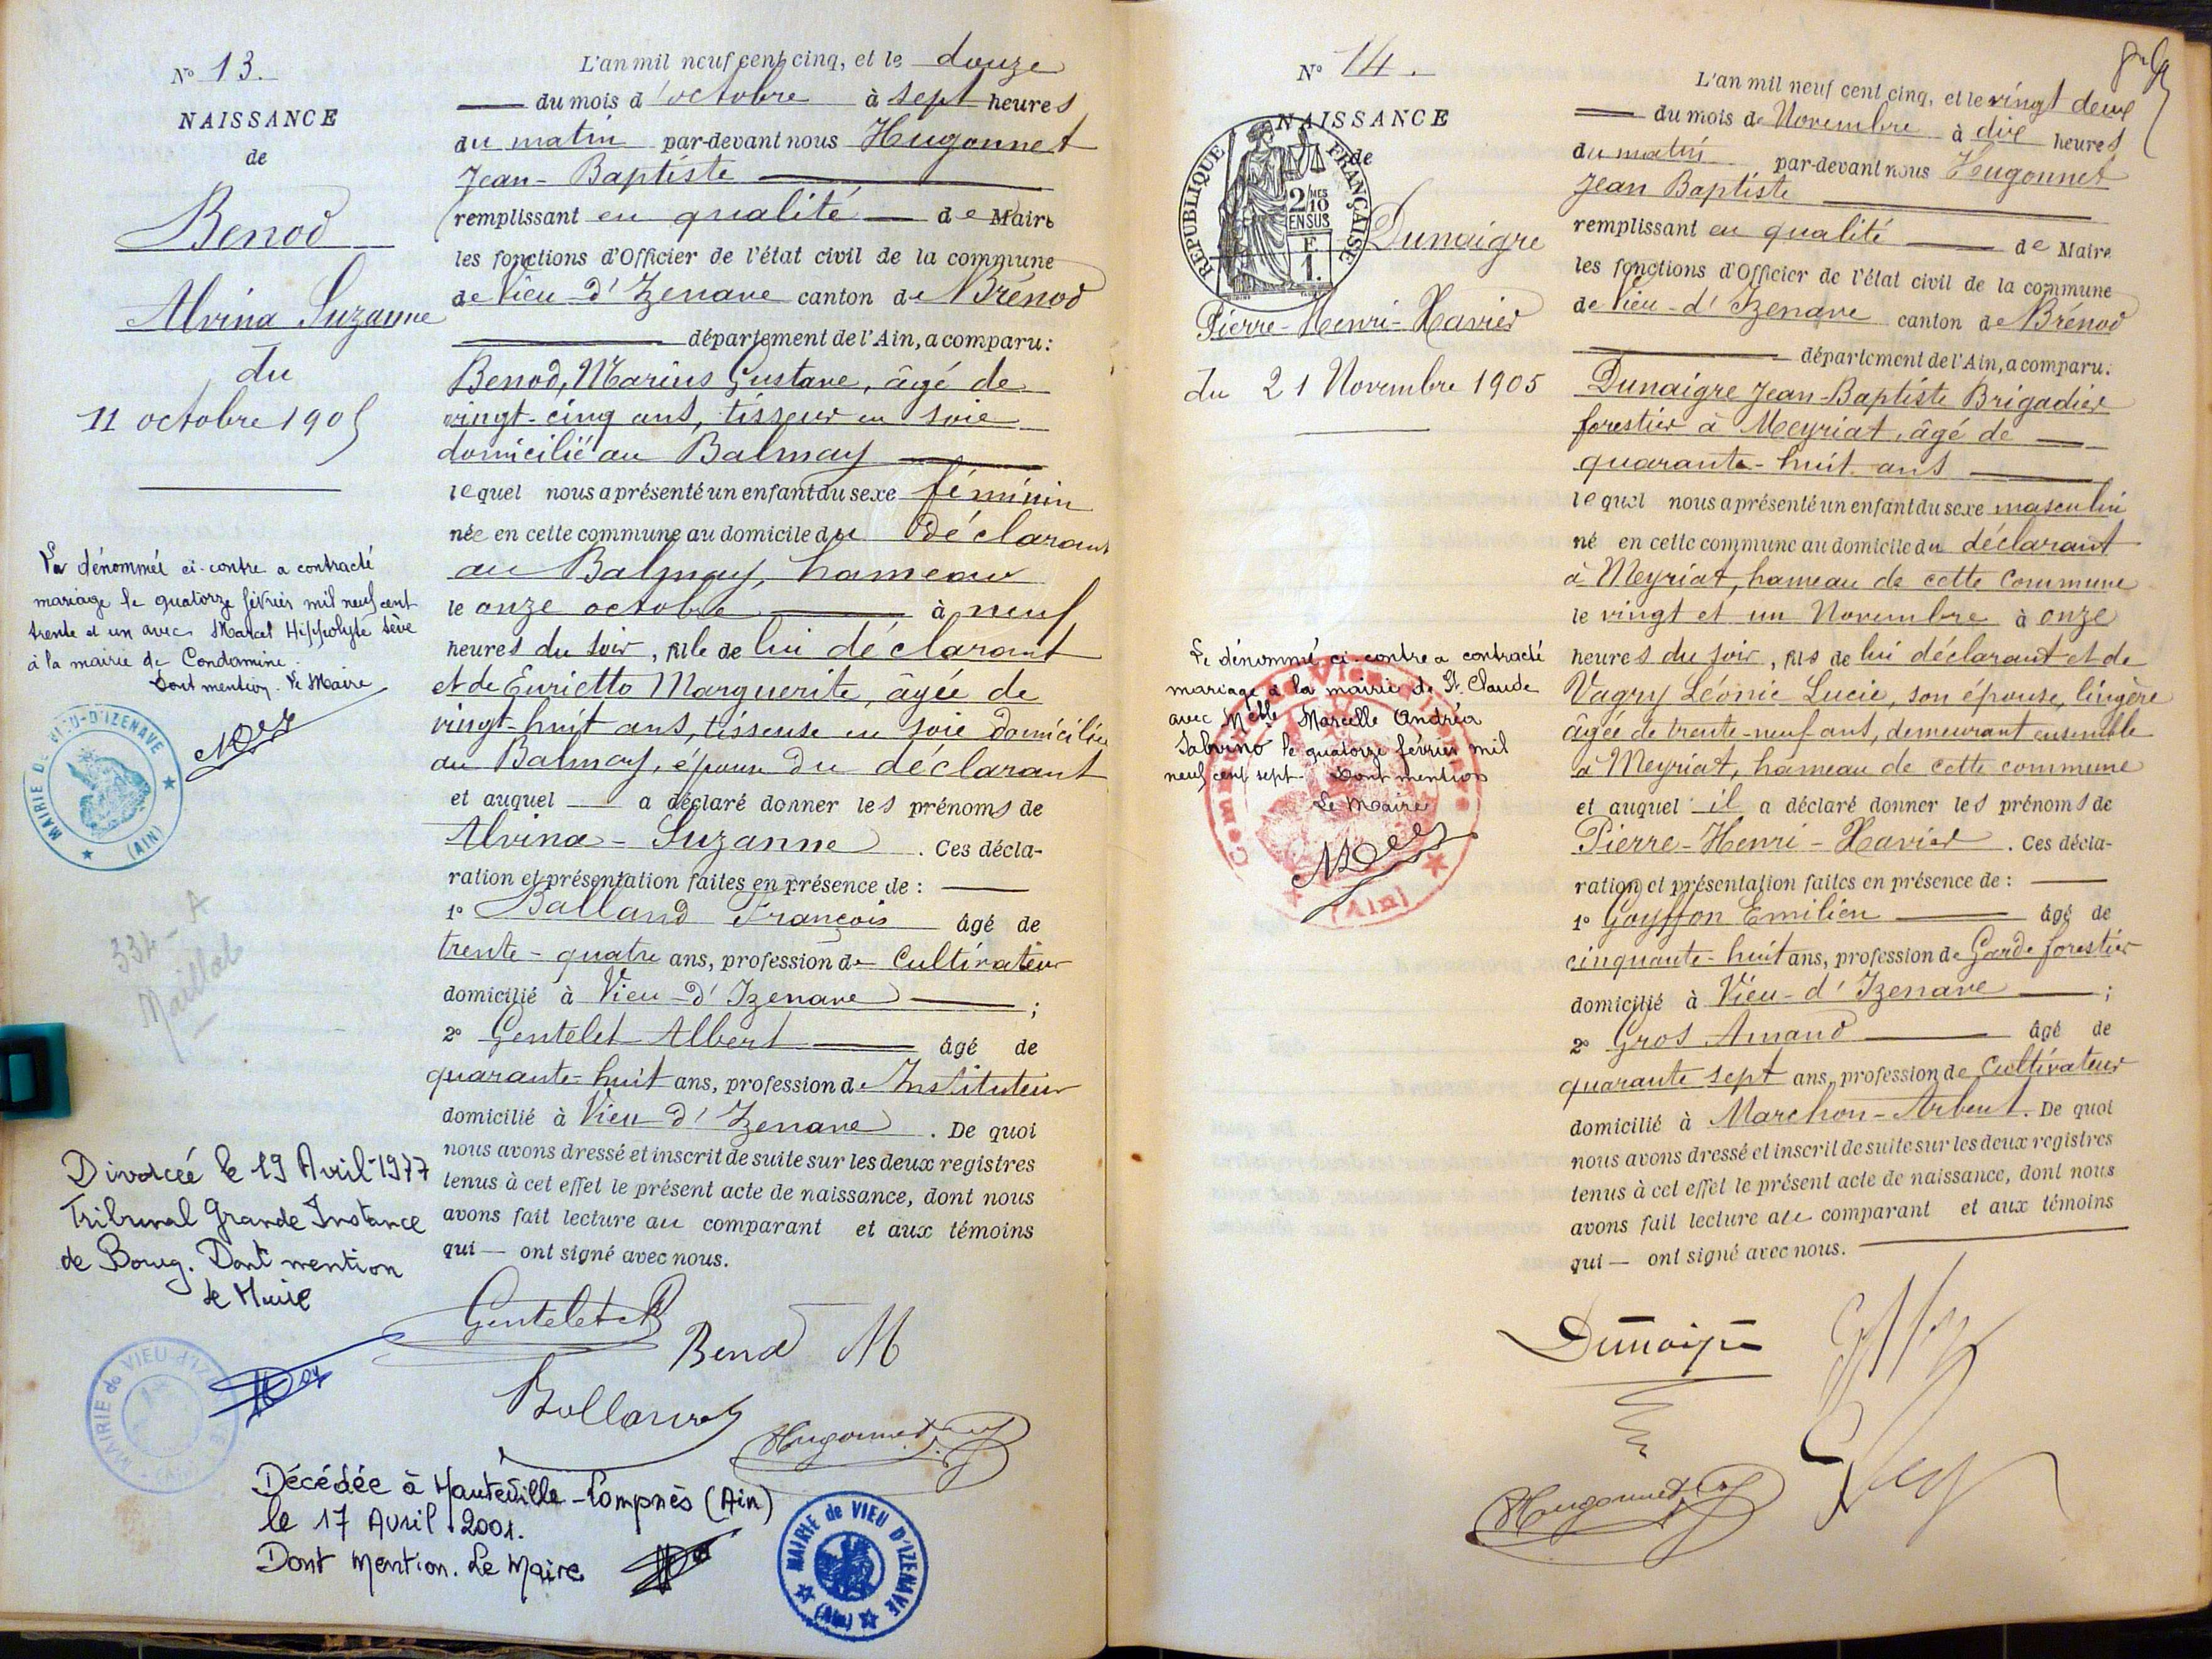 N° 13.
NAISSANCE
de
Benod
Alvina Suzanne
du
11 octobre 1905
La dénommée ci-contre a contracté
mariage le quatorze février mil neuf cent
trente et un avec Marcel Hippolyte Sève
à la mairie de Condamine.
Dont mention. Le Maire
MAIRIE DE VIEU-D'IZENAVE
(AIN)
337-A
Maillat
Divorcée le 19 Avril 1977
Tribunal Grande Instance
de Bourg. Dont mention
le Maire
MAIRIE de VIEU-d'IZENAVE
(Ain)
L'an mil neuf cent cinq, et le douze
du mois d'octobre à sept heures
du matin par-devant nous Hugonnet
Jean-Baptiste
remplissant en qualité de Maire
les fonctions d'Officier de l'état civil de la commune
de Vieu-d'Izenave canton de Brénod
département de l'Ain, a comparu:
Benod, Marius Gustave, âgé de
vingt-cinq ans, tisseur en soie
domicilié au Balmay
lequel nous a présenté un enfant du sexe féminin
née en cette commune au domicile du déclarant
au Balmay, hameau
le onze octobre à neuf
heures du soir, fille de lui déclarant
et de Eurietto Marguerite, âgée de
vingt-huit ans, tisseuse en soie domiciliée
au Balmay, épouse du déclarant
et auquel a déclaré donner les prénoms de
Alvina-Suzanne. Ces décla-
ration et présentation faites en présence de:
1° Balland François âgé de
trente-quatre ans, profession de Cultivateur
domicilié à Vieu-d'Izenave ;
2° Gentelet Albert âgé de
quarante-huit ans, profession de Instituteur
domicilié à Vieu d'Izenave. De quoi
nous avons dressé et inscrit de suite sur les deux registres
tenus à cet effet le présent acte de naissance, dont nous
avons fait lecture au comparant et aux témoins
qui — ont signé avec nous.
Gentelet
Benod M
Balland
Hugonnet
Décédée à Hauteville-Lompnès (Ain)
le 17 Avril 2001.
Dont Mention. Le Maire
MAIRIE de VIEU D'IZENAVE
(Ain)
N° 14.
NAISSANCE
de
REPUBLIQUE FRANÇAISE
2 MES
2/10
EN SUS
F
1.
Dunaigre
Pierre-Henri-Xavier
du 21 Novembre 1905
Le dénommé ci-contre a contracté
mariage à la mairie de St. Claude
avec Melle Marcelle Andréa
Sabrino le quatorze février mil
neuf cent sept. Dont mention
Le Maire
(Ain)
L'an mil neuf cent cinq, et le vingt deux
du mois de Novembre à dix heures
du matin par-devant nous Hugonnet
Jean Baptiste
remplissant en qualité de Maire
les fonctions d'Officier de l'état civil de la commune
de Vieu-d'Izenave canton de Brénod
département de l'Ain, a comparu:
Dunaigre Jean-Baptiste Brigadier
forestier à Meyriat, âgé de
quarante-huit ans
lequel nous a présenté un enfant du sexe masculin
né en cette commune au domicile du déclarant
à Meyriat, hameau de cette commune
le vingt et un Novembre à onze
heures du soir, fils de lui déclarant et de
Vagny Léonie Lucie, son épouse, lingère
âgée de trente-neuf ans, demeurant ensemble
à Meyriat, hameau de cette commune
et auquel il a déclaré donner les prénoms de
Pierre-Henri-Xavier. Ces décla-
ration et présentation faites en présence de:
1° Goyffon Emilien âgé de
cinquante-huit ans, profession de Garde forestier
domicilié à Vieu-d'Izenave ;
2° Gros Amand âgé de
quarante sept ans, profession de Cultivateur
domicilié à Marchon-Arbent. De quoi
nous avons dressé et inscrit de suite sur les deux registres
tenus à cet effet le présent acte de naissance, dont nous
avons fait lecture au comparant et aux témoins
qui — ont signé avec nous.
Dunaigre
Hugonnet